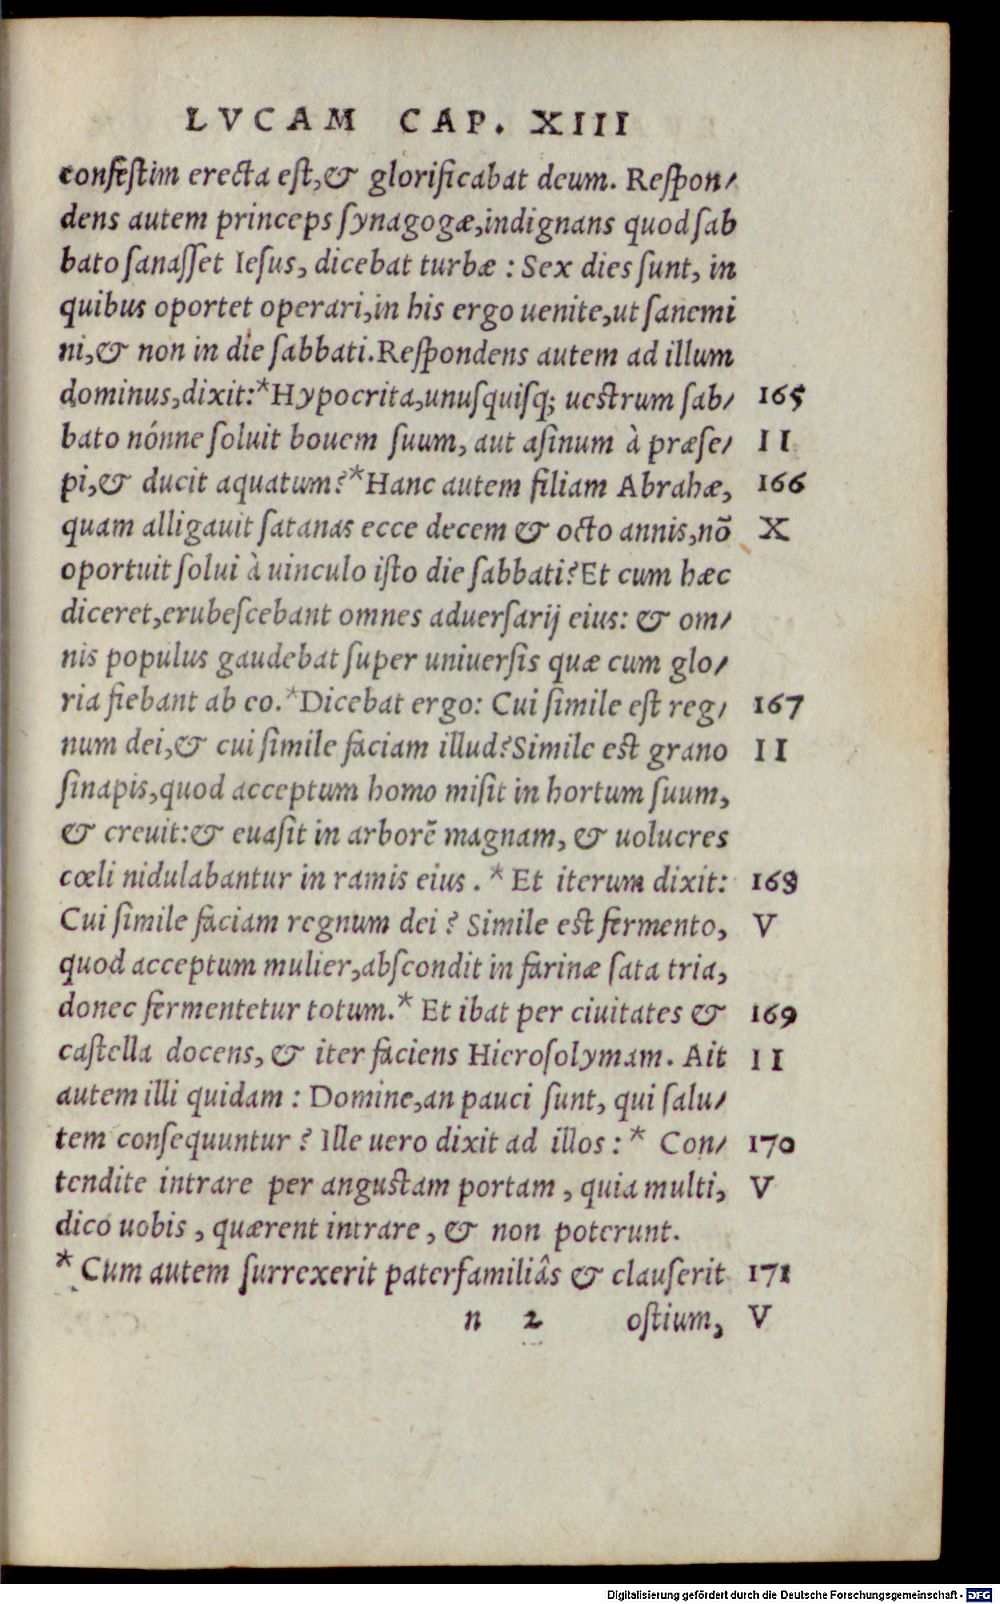 LVCAM CAP. XIII
confestim erecta est,& glorificabat deum. Respon-
dens autem princeps synagogæ,indignans quod sab
bato sanasset Iesus, dicebat turbæ : Sex dies sunt, in
quibus oportet operari,in his ergo uenite,ut sanemi
ni,& non in die sabbati.Respondens autem ad illum
dominus,dixit:*Hypocrita,unusquisq; uestrum sab- 165
bato nónne soluit bouem suum, aut asinum à præse- II
pi,& ducit aquatum?*Hanc autem filiam Abrahæ, 166
quam alligauit satanas ecce decem & octo annis,nō X
oportuit solui à uinculo isto die sabbati?Et cum hæc
diceret,erubescebant omnes aduersarij eius: & om-
nis populus gaudebat super uniuersis quæ cum glo-
ria fiebant ab eo.*Dicebat ergo: Cui simile est reg- 167
num dei,& cui simile faciam illud?Simile est grano II
sinapis,quod acceptum homo misit in hortum suum,
& creuit:& euasit in arborē magnam, & uolucres
cœli nidulabantur in ramis eius . * Et iterum dixit: 168
Cui simile faciam regnum dei ? Simile est fermento, V
quod acceptum mulier,abscondit in farinæ sata tria,
donec fermentetur totum.* Et ibat per ciuitates & 169
castella docens, & iter faciens Hierosolymam. Ait II
autem illi quidam : Domine,an pauci sunt, qui salu-
tem consequuntur ? Ille uero dixit ad illos : * Con- 170
tendite intrare per angustam portam , quia multi, V
dico uobis , quærent intrare , & non poterunt.
* Cum autem surrexerit paterfamiliâs & clauserit 171
n 2 ostium, V
Digitalisierung gefördert durch die Deutsche Forschungsgemeinschaft - DFG